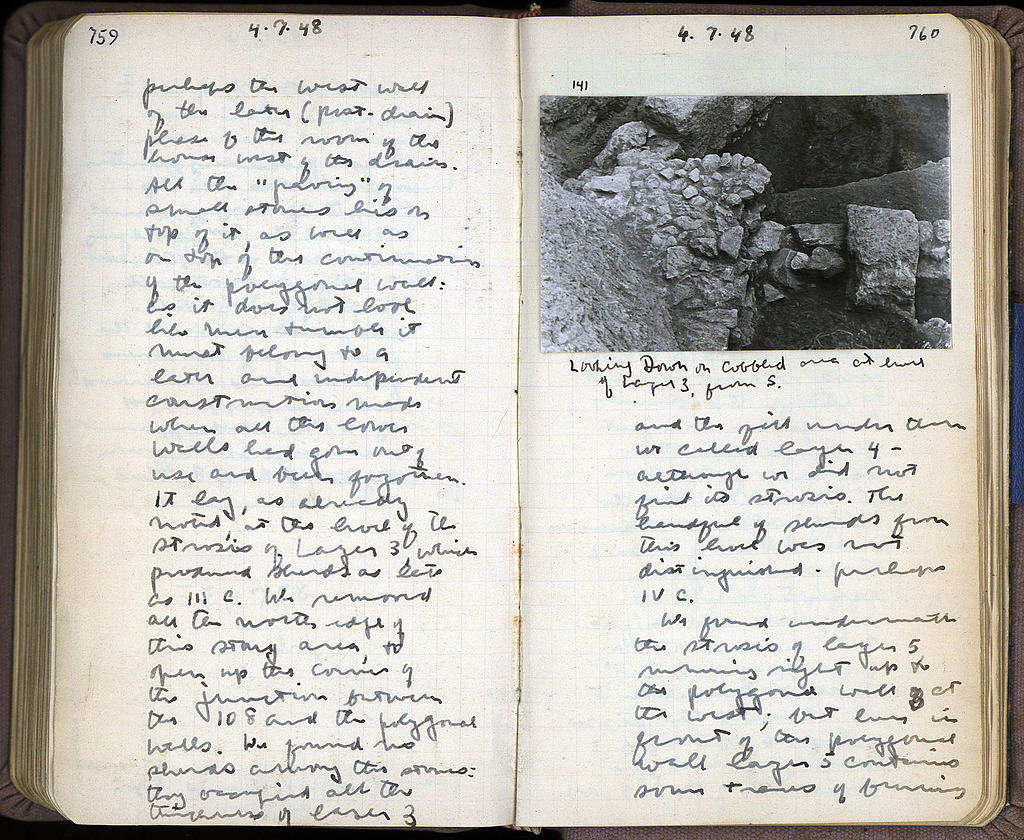 759
4.7.48
perhaps the west wall
of the later (post-drain)
phase of the room of the
house west of the drain.
All the "paving" of
small stones lies on
top of it, as well as
on top of the continuation
of the polygonal wall:
as it does not look
like mere tumble it
must belong to a
later and independent
construction made
when all the lower
walls had gone out of
use and been forgotten.
It lay, as already
noted, at the level of the
strosis of Layer 3, which
produced sherds as late
as III c. We removed
all the north edge of
this stony area, to
open up the corner of
the junction between
the 108 and the polygonal
walls. We found no
sherds among the stones:
they occupied all the
thickness of layer 3
4.7.48
760
141
Looking Down on cobbled area at level
of Layer 3, from S.
and the fill under them
we called layer 4 -
although we did not
find its strosis. The
handful of sherds from
this level was not
distinguished - perhaps
IV c.
We found underneath
the strosis of layer 5,
running right up to
the polygonal wall at
the west; but even in
front of the polygonal
wall layer 5 contains
some traces of burning